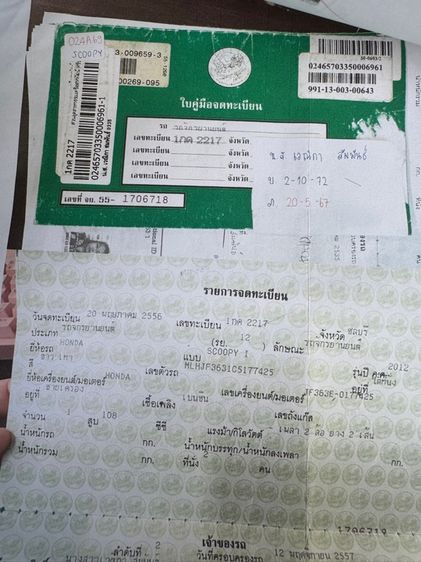 024A69
SCOOPY
3-009659-3
00269-095
1กค 2217
02465703350006961-1
02465703350006961
991-13-003-00643
ใบคู่มือจดทะเบียน
รถ รถจักรยานยนต์
เลขทะเบียน 1กค 2217 จังหวัด
เลขทะเบียน จังหวัด
เลขทะเบียน จังหวัด
เลขที่ จย. 55- 1706718
2-10-72
20-5-67
รายการจดทะเบียน
วันจดทะเบียน 20 พฤษภาคม 2556 เลขทะเบียน 1กค 2217 จังหวัด ชลบุรี
ประเภท รถจักรยานยนต์ (รย. 12 ) ลักษณะ รถจักรยานยนต์
ยี่ห้อรถ HONDA แบบ SCOOPY I รุ่นปี ค.ศ. 2012
สี ขาว เทา เลขตัวรถ MLHJF3631C5177425 อยู่ที่ ใต้ที่นั่ง
ยี่ห้อเครื่องยนต์/มอเตอร์ HONDA เลขเครื่องยนต์/มอเตอร์ JF363E-0177425
อยู่ที่ ซ้ายเครื่อง เชื้อเพลิง เบนซิน เลขถังแก๊ส
จำนวน 1 สูบ 108 ซีซี แรงม้า/กิโลวัตต์ เพลา 2 ล้อ ยาง 2 เส้น
น้ำหนักรถ กก. น้ำหนักบรรทุก/น้ำหนักลงเพลา กก.
น้ำหนักรวม กก. ที่นั่ง 2 คน
1706718
เจ้าของรถ
ลำดับที่ 2 วันที่ครอบครองรถ 12 พฤศจิกายน 2557